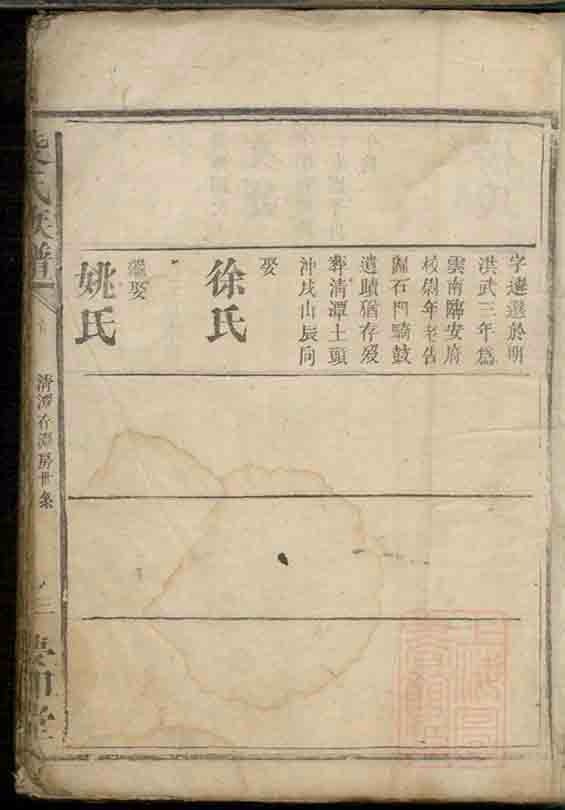 字遴選於明
洪武三年為
雲南臨安府
校尉年老告
歸石門騎鼓
遺蹟猶存歿
葬清潭土頭
沖戌山辰向
娶
徐氏
繼娶
姚氏
氏族譜
清潭
房世系
三
堂